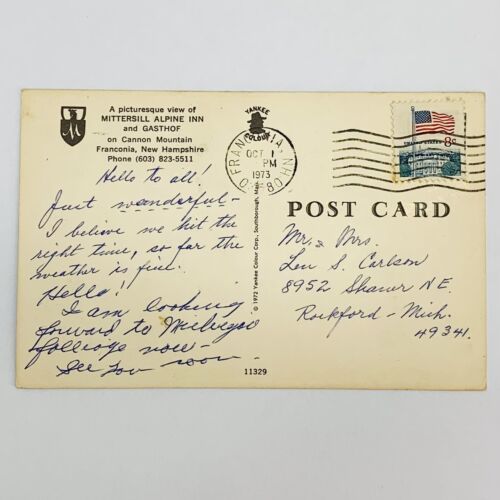 A picturesque view of
MITTERSILL ALPINE INN
and GASTHOF
on Cannon Mountain
Franconia, New Hampshire
Phone (603) 823-5511
Hello to all!
Just wonderful-
I believe we hit the
right time, so far the
weather is fine.
Hello!
I am looking
forward to Michigan
folliage now-
See you soon-
YANKEE
COLOUR
© 1972 Yankee Colour Corp., Southborough, Mass.
11329
FRANCONIA, NH
OCT 1
PM
1973
0 80
UNITED STATES 8c
POST CARD
Mr. & Mrs.
Len S. Carlson
8952 Shaner N E.
Rockford - Mich.
49341.